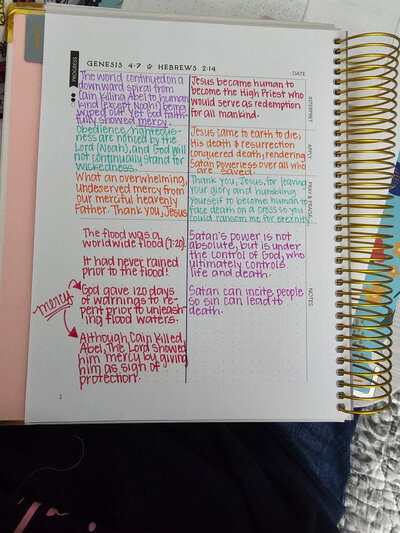 GENESIS 4-7 & HEBREWS 2:14
DATE
PROGRESS
The world continued on a
downward spiral from
Cain killing Abel to human
kind (except Noah!) being
wiped out. Yet God faith-
fully showed mercy.
Obedience/righteous-
ness are noticed by the
Lord (Noah), and God will
not continually stand for
wickedness.
What an overwhelming,
undeserved mercy from
our merciful heavenly
Father. Thank you, Jesus
The flood was a
worldwide flood (7:20).
It had never rained
prior to the flood!
mercy
God gave 120 days
of warnings to re-
pent prior to unleash-
ing flood waters.
Although Cain killed
Abel, The Lord showed
him mercy by giving
him as sign of
protection.
2
Jesus became human to
become the High Priest who
would serve as redemption
for all mankind.
INTERPRET
Jesus came to earth to die;
His death & resurrection
conquered death, rendering
Satan powerless over all who
are saved.
APPLY
Thank you, Jesus, for leaving
your glory and humbling
yourself to become human to
face death on a cross so you
could ransom me for eternity.
PRAY & PRAISE
Satan's power is not
absolute, but is under
the control of God, who
ultimately controls
life and death.
Satan can incite people
so sin can lead to
death.
NOTES